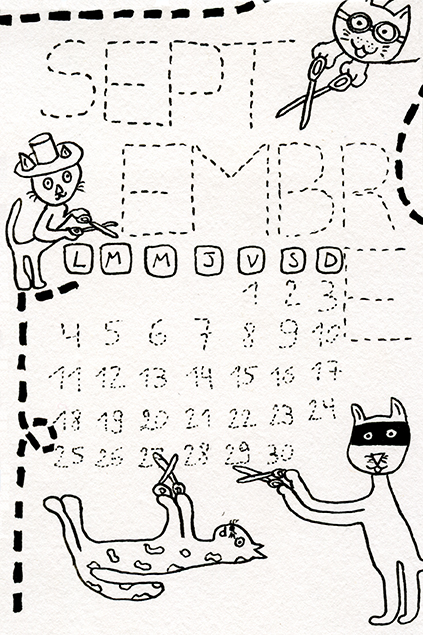 SEPT
EMBR
E
L M M J V S D
1 2 3
4 5 6 7 8 9 10
11 12 13 14 15 16 17
18 19 20 21 22 23 24
25 26 27 28 29 30